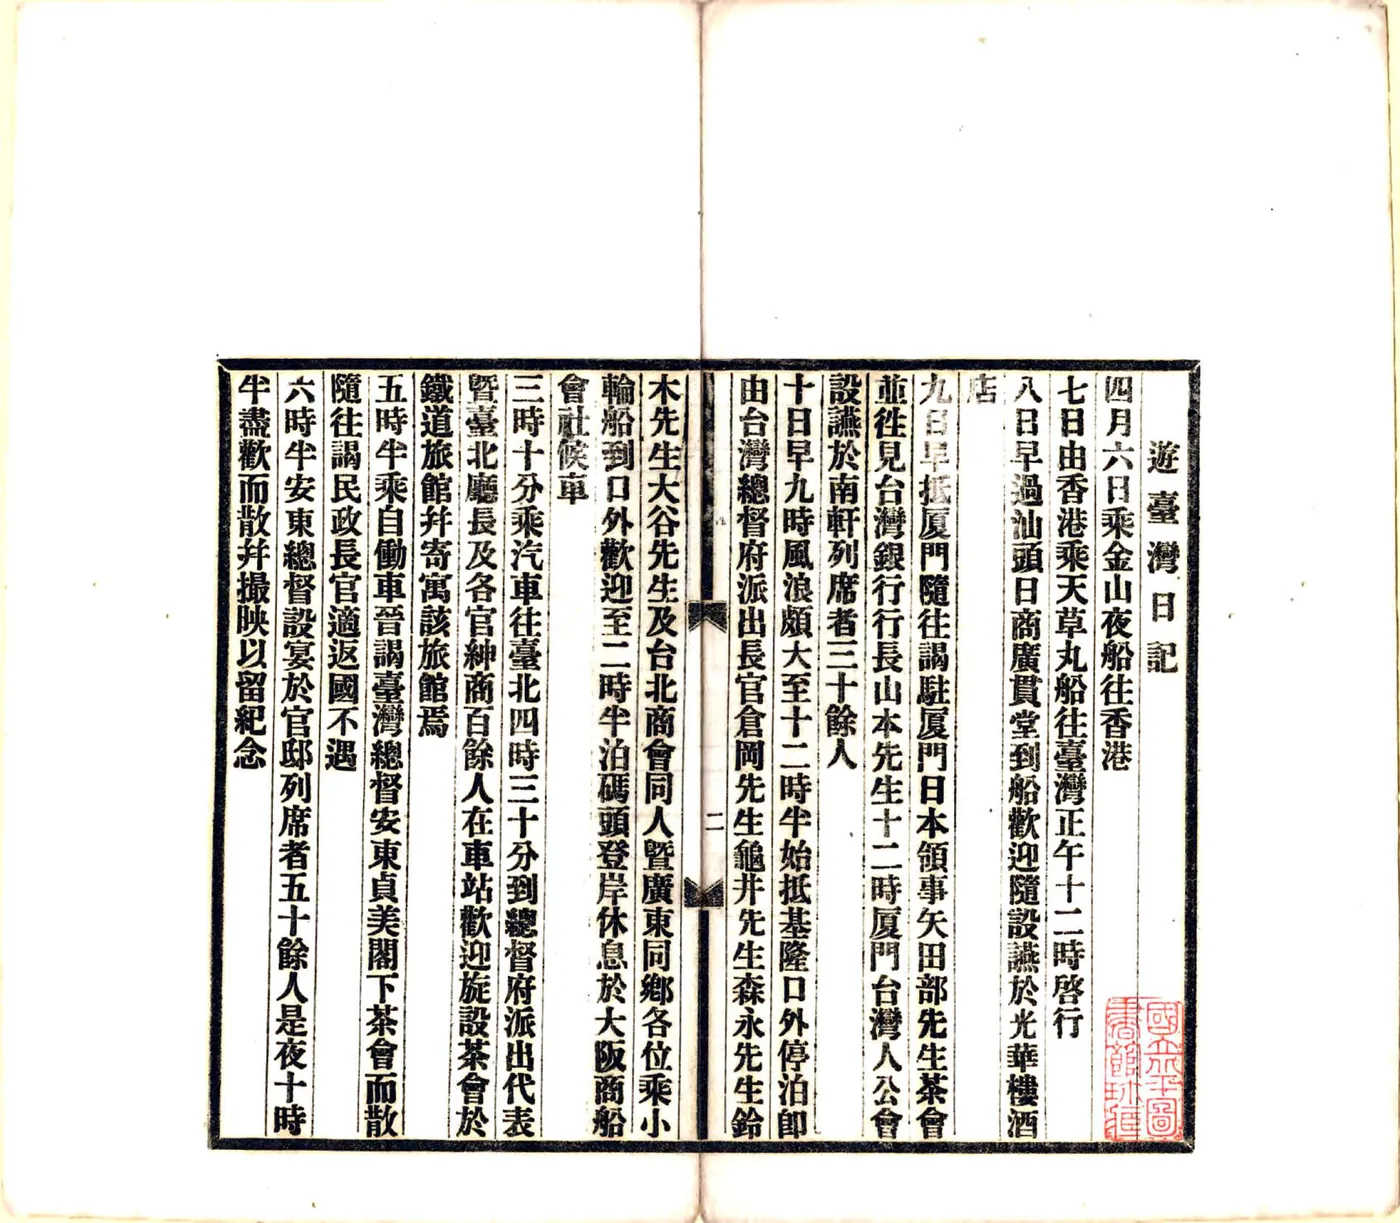 遊臺灣日記
四月六日乘金山夜船往香港
七日由香港乘天草丸船往臺灣正午十二時啓行
八日早過汕頭日商廣貫堂到船歡迎隨設讌於光華樓酒
店
九日早抵厦門隨往謁駐厦門日本領事矢田部先生茶會
並徃見台灣銀行行長山本先生十二時厦門台灣人公會
設讌於南軒列席者三十餘人
十日早九時風浪頗大至十二時半始抵基隆口外停泊卽
由台灣總督府派出長官倉岡先生龜井先生森永先生鈴
二
木先生大谷先生及台北商會同人曁廣東同鄕各位乘小
輪船到口外歡迎至二時半泊碼頭登岸休息於大阪商船
會社候車
三時十分乘汽車往臺北四時三十分到總督府派出代表
曁臺北廳長及各官紳商百餘人在車站歡迎旋設茶會於
鐵道旅館幷寄寓該旅館焉
五時半乘自働車晉謁臺灣總督安東貞美閣下茶會而散
隨往謁民政長官適返國不遇
六時半安東總督設宴於官邸列席者五十餘人是夜十時
半盡歡而散幷撮映以留紀念
國立北平圖
書館珍藏